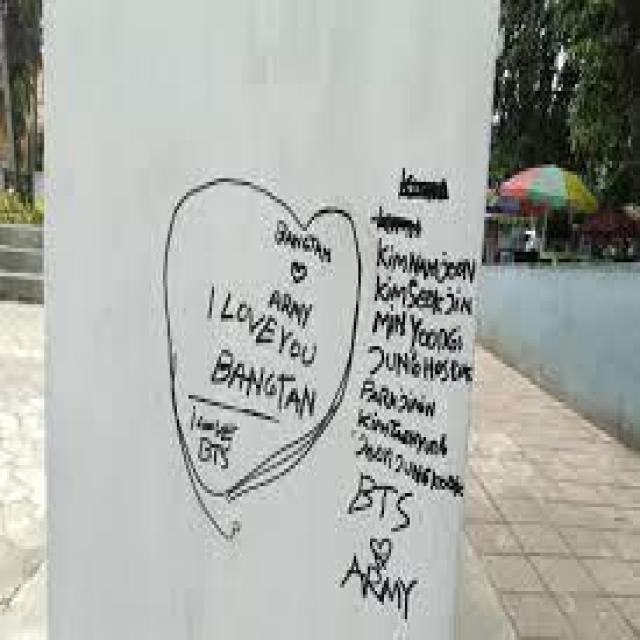 BANGTAN
ARMY
I LOVE YOU
BANGTAN
I LOVE
BTS
KIM NAM JOON
KIM SEOK JIN
MIN YOONGI
JUNG HOSEOK
PARK JIMIN
KIM TAEHYUNG
JEON JUNGKOOK
BTS
ARMY